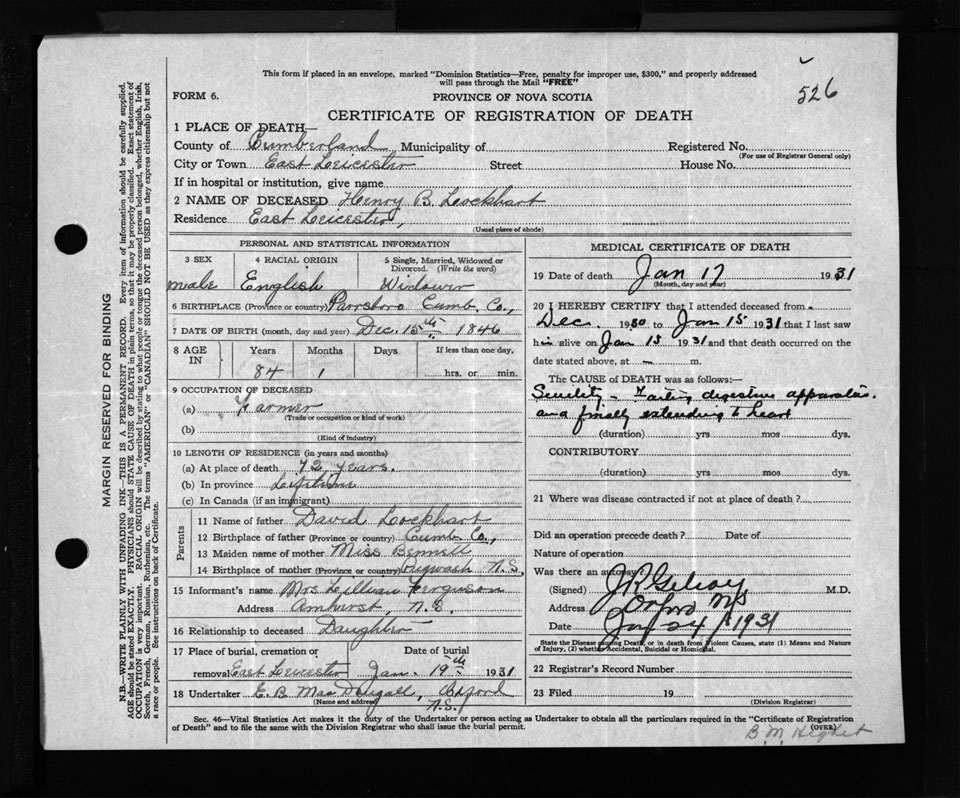 This form if placed in an envelope, marked "Dominion Statistics—Free, penalty for improper use, $300," and properly addressed
will pass through the Mail "FREE"
526
FORM 6.
PROVINCE OF NOVA SCOTIA
CERTIFICATE OF REGISTRATION OF DEATH
1 PLACE OF DEATH—
County of Cumberland Municipality of Registered No.
(For use of Registrar General only)
City or Town East Leicester Street House No.
If in hospital or institution, give name
2 NAME OF DECEASED Henry B. Lockhart
Residence East Leicester,
(Usual place of abode)
PERSONAL AND STATISTICAL INFORMATION
3 SEX 4 RACIAL ORIGIN 5 Single, Married, Widowed or Divorced. (Write the word)
male English Widower
6 BIRTHPLACE (Province or country) Parrsboro Cumb. Co.,
7 DATE OF BIRTH (month, day and year) Dec. 15th 1846
8 AGE IN Years Months Days If less than one day,
84 1 hrs. or min.
9 OCCUPATION OF DECEASED
(a) Farmer
(Trade or occupation or kind of work)
(b)
(Kind of industry)
10 LENGTH OF RESIDENCE (in years and months)
(a) At place of death 72 years.
(b) In province Lifetime
(c) In Canada (if an immigrant)
Parents
11 Name of father David Lockhart
12 Birthplace of father (Province or country) Cumb. Co.,
13 Maiden name of mother Miss
14 Birthplace of mother (Province or country) Pugwash N.S.
15 Informant's name Mrs Lillian Ferguson
Address Amherst, N.S.
16 Relationship to deceased Daughter
17 Place of burial, cremation or Date of burial
removal East Leicester Jan. 19th 1931
18 Undertaker E. B. Oxford
(Name and address) N.S.
MEDICAL CERTIFICATE OF DEATH
19 Date of death Jan 17 1931
(Month, day and year)
20 I HEREBY CERTIFY that I attended deceased from
Dec. 1930 to Jan 15 1931 that I last saw
him alive on Jan 15 1931 and that death occurred on the
date stated above, at — m.
The CAUSE of DEATH was as follows:—
Senility – Failing digestive apparatus.
and finally extending to heart
(duration) yrs mos dys.
CONTRIBUTORY
(duration) yrs mos dys.
21 Where was disease contracted if not at place of death ?
Did an operation precede death ? Date of
Nature of operation
Was there an autopsy?
(Signed) M.D.
Address Oxford NS
Date Jan 24 / 1931
State the Disease causing Death, or in death from Violent Causes, state (1) Means and Nature
of Injury, (2) whether Accidental, Suicidal or Homicidal.
22 Registrar's Record Number
23 Filed 19
(Division Registrar)
Sec. 46—Vital Statistics Act makes it the duty of the Undertaker or person acting as Undertaker to obtain all the particulars required in the "Certificate of Registration
of Death" and to file the same with the Division Registrar who shall issue the burial permit. (OVER)
B. M.
MARGIN RESERVED FOR BINDING
N.B.—WRITE PLAINLY WITH UNFADING INK—THIS IS A PERMANENT RECORD. Every item of information should be carefully supplied.
AGE should be stated EXACTLY. PHYSICIANS should STATE CAUSE OF DEATH in plain terms, so that it may be properly classified. Exact statement of
OCCUPATION is very important. RACIAL ORIGIN will be described by stating to what people or tongue the deceased person belonged, whether English, Irish,
Scotch, French, German, Russian, Ruthenian, etc. The terms "AMERICAN" or "CANADIAN" SHOULD NOT BE USED as they express citizenship but not
a race or people. See instructions on back of Certificate.